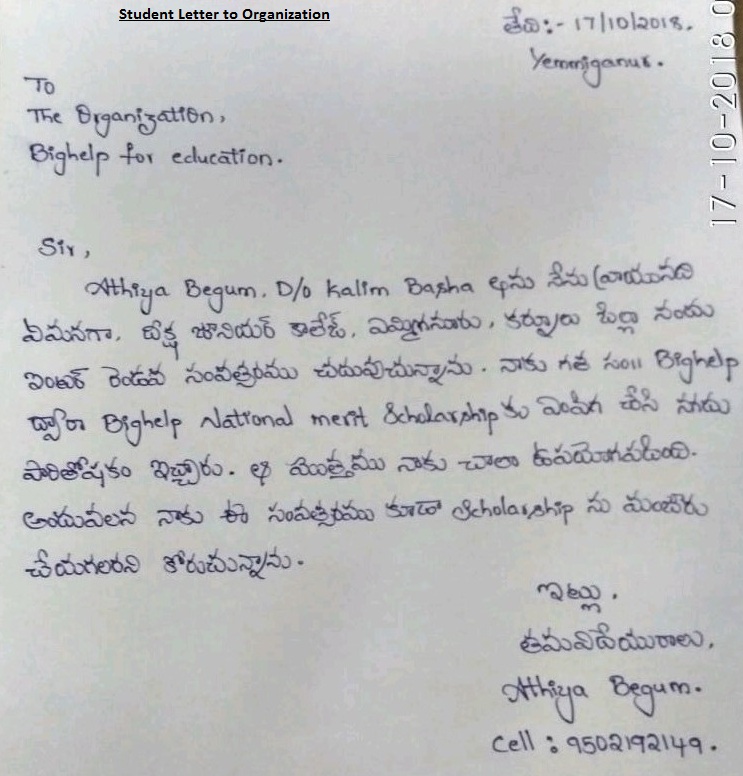 Student Letter to Organization
తేది:- 17/10/2018.
Yemmiganur.
To
The Organization,
Bighelp for education.
Sir,
Athiya Begum. D/o Kalim Basha అను నేను వ్రాయునది
ఏమనగా, దీక్ష జూనియర్ కాలేజ్, ఎమ్మిగనూరు, కర్నూలు జిల్లా నందు
ఇంటర్ రెండవ సంవత్సరము చదువుచున్నాను. నాకు గత సం॥ Bighelp
ద్వారా Bighelp National merit Scholarship కు ఎంపిక చేసి నగదు
పారితోషకం ఇచ్చారు. ఆ మొత్తము నాకు చాలా ఉపయోగపడింది.
అందువలన నాకు ఈ సంవత్సరము కూడా Scholarship ను మంజూరు
చేయగలరని కోరుచున్నాను.
ఇట్లు,
తమవిదేయురాలు,
Athiya Begum.
Cell : 9502192149.
17-10-2018 0